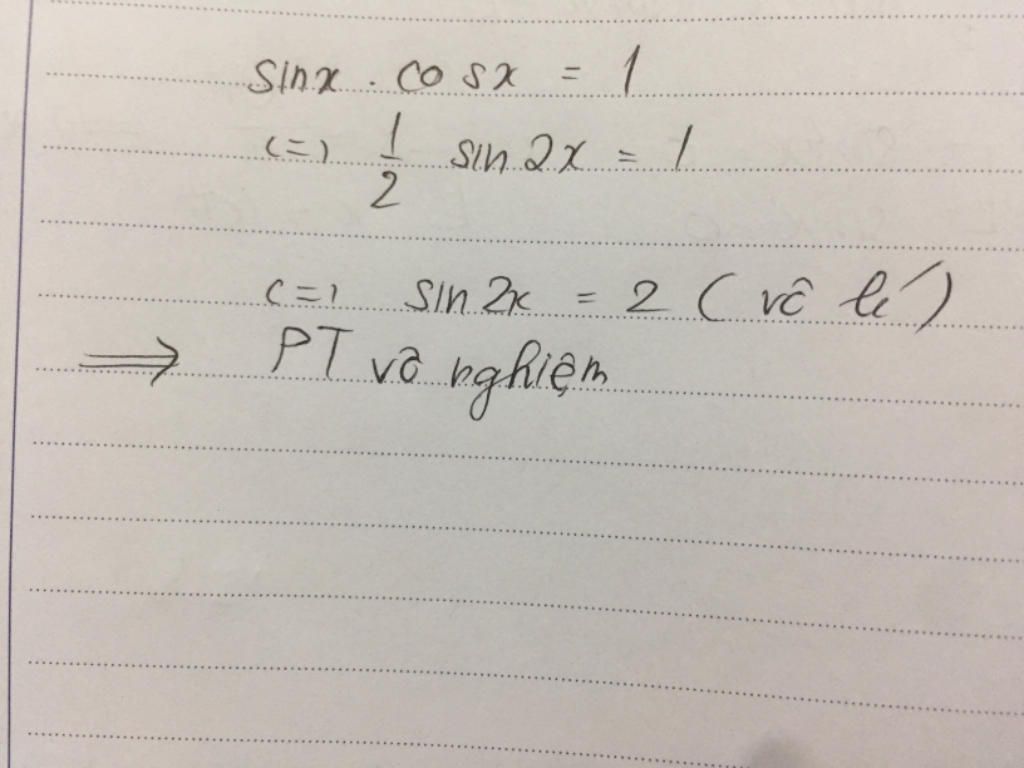 sinx . cosx = 1
<=> 1/2 sin2x = 1
<=> sin2x = 2 (vô lí)
=> PT vô nghiệm